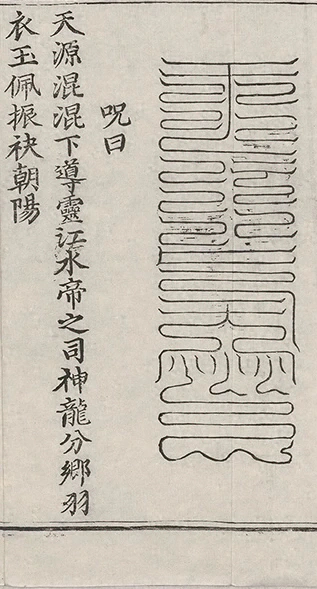 呪曰
天源混混下導靈江水帝之司神龍分鄉羽
衣玉佩振袂朝陽